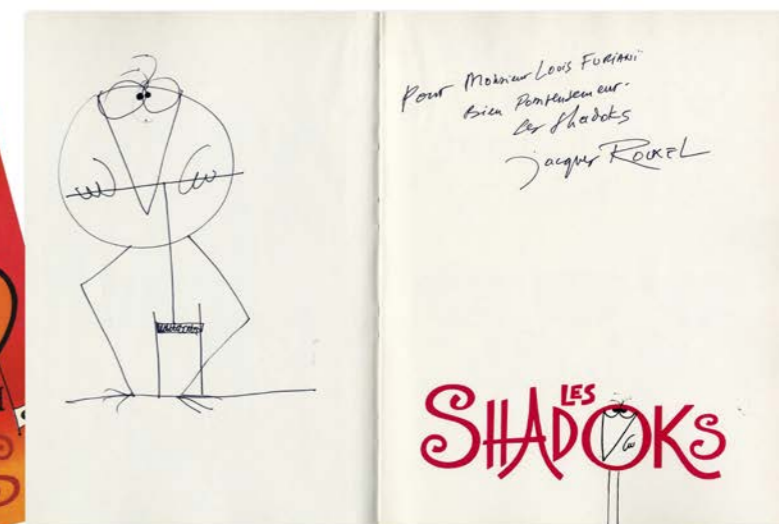 Pour Monsieur Louis FURIANI
Bien Pompeusement.
Les Shadoks
Jacques ROUXEL
LES
SHADOKS